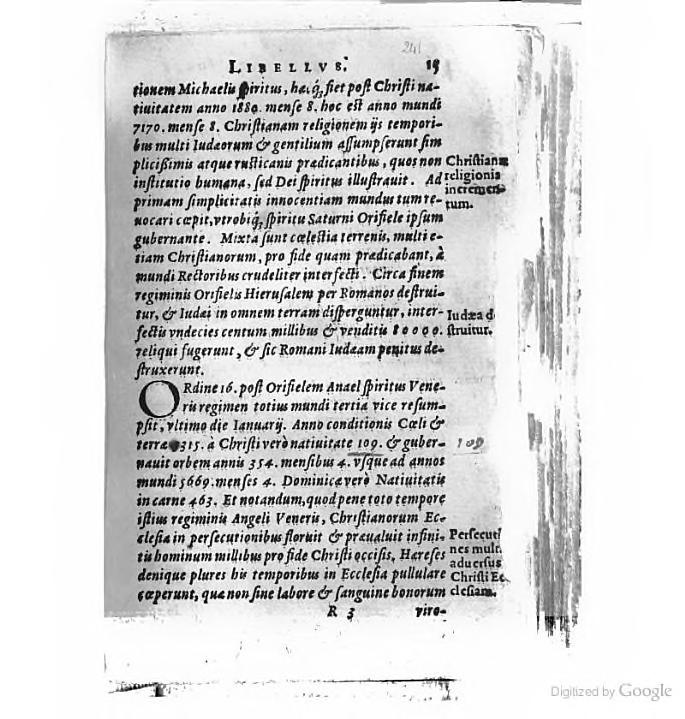 241
LIBELLVS. 15
tionem Michaelis spiritus, hæc q́; fiet post Christi na-
tiuitatem anno 1880. mense 8. hoc est anno mundi
7170. mense 8. Christianam religionem ijs tempori-
bus multi Iudæorum & gentilium assumpserunt sim
plicißimis atque rusticanis prædicantibus, quos non
institutio humana, sed Dei spiritus illustrauit. Ad
primam simplicitatis innocentiam mundus tum re-
uocari cœpit, vtrobiq́; spiritu Saturni Orifiele ipsum
gubernante. Mixta sunt cœlestia terrenis, multi e-
tiam Christianorum, pro fide quam prædicabant, à
mundi Rectoribus crudeliter interfecti. Circa finem
regiminis Orifielis Hierusalem per Romanos destrui-
tur, & Iudæi in omnem terram disperguntur, inter-
fectis vndecies centum millibus & venditis 80000.
reliqui fugerunt, & sic Romani Iudæam penitus de-
struxerunt.
Christianæ
religionis
incremen-
tum.
Iudæa d
struitur.
ORdine 16. post Orifielem Anael spiritus Vene-
ris regimen totius mundi tertia vice resum-
psit, vltimo die Ianuarij. Anno conditionis Cœli &
terræ 5315. à Christi verò natiuitate 109. & guber-
nauit orbem annis 354. mensibus 4. vsque ad annos
mundi 5669. menses 4. Dominicæ verò Natiuitatis
in carne 463. Et notandum, quod pene toto tempore
istius regiminis Angeli Veneris, Christianorum Ec-
clesia in persecutionibus floruit & præualuit infini-
tis hominum millibus pro fide Christi occisis, Hæreses
denique plures his temporibus in Ecclesia pullulare
cœperunt, quæ non sine labore & sanguine bonorum
109
Persecuti
nes mult.
aduersus
Christi Ec
clesiam.
R 3 viro-
Digitized by Google